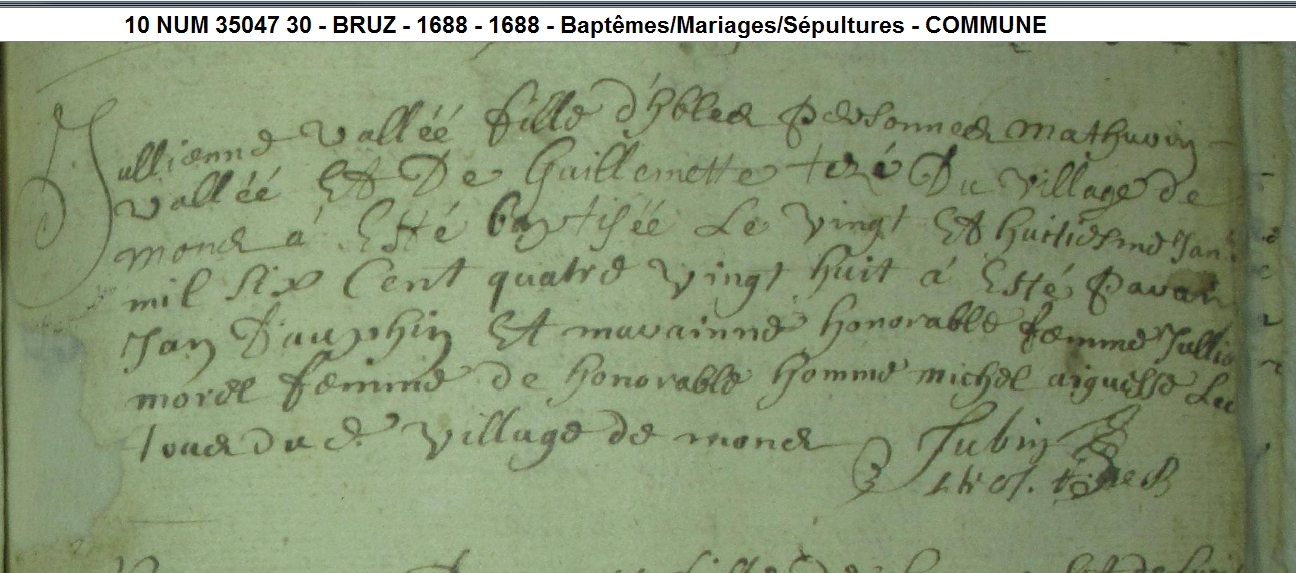 10 NUM 35047 30 - BRUZ - 1688 - 1688 - Baptêmes/Mariages/Sépultures - COMMUNE
Jullienne valléé fille d'hbles personnes mathurin
valléé Et De Guillemette teze Du village de
mons a Esté baptiséé Le vingt Et huitiesme Jan
mil six Cent quatre vingt huit á Esté parain
Jan Dauphin Et marainne honorable femme Jullie
morel femme de honorable homme michel aiguisse Les
tous du d. village de mons
Jubin